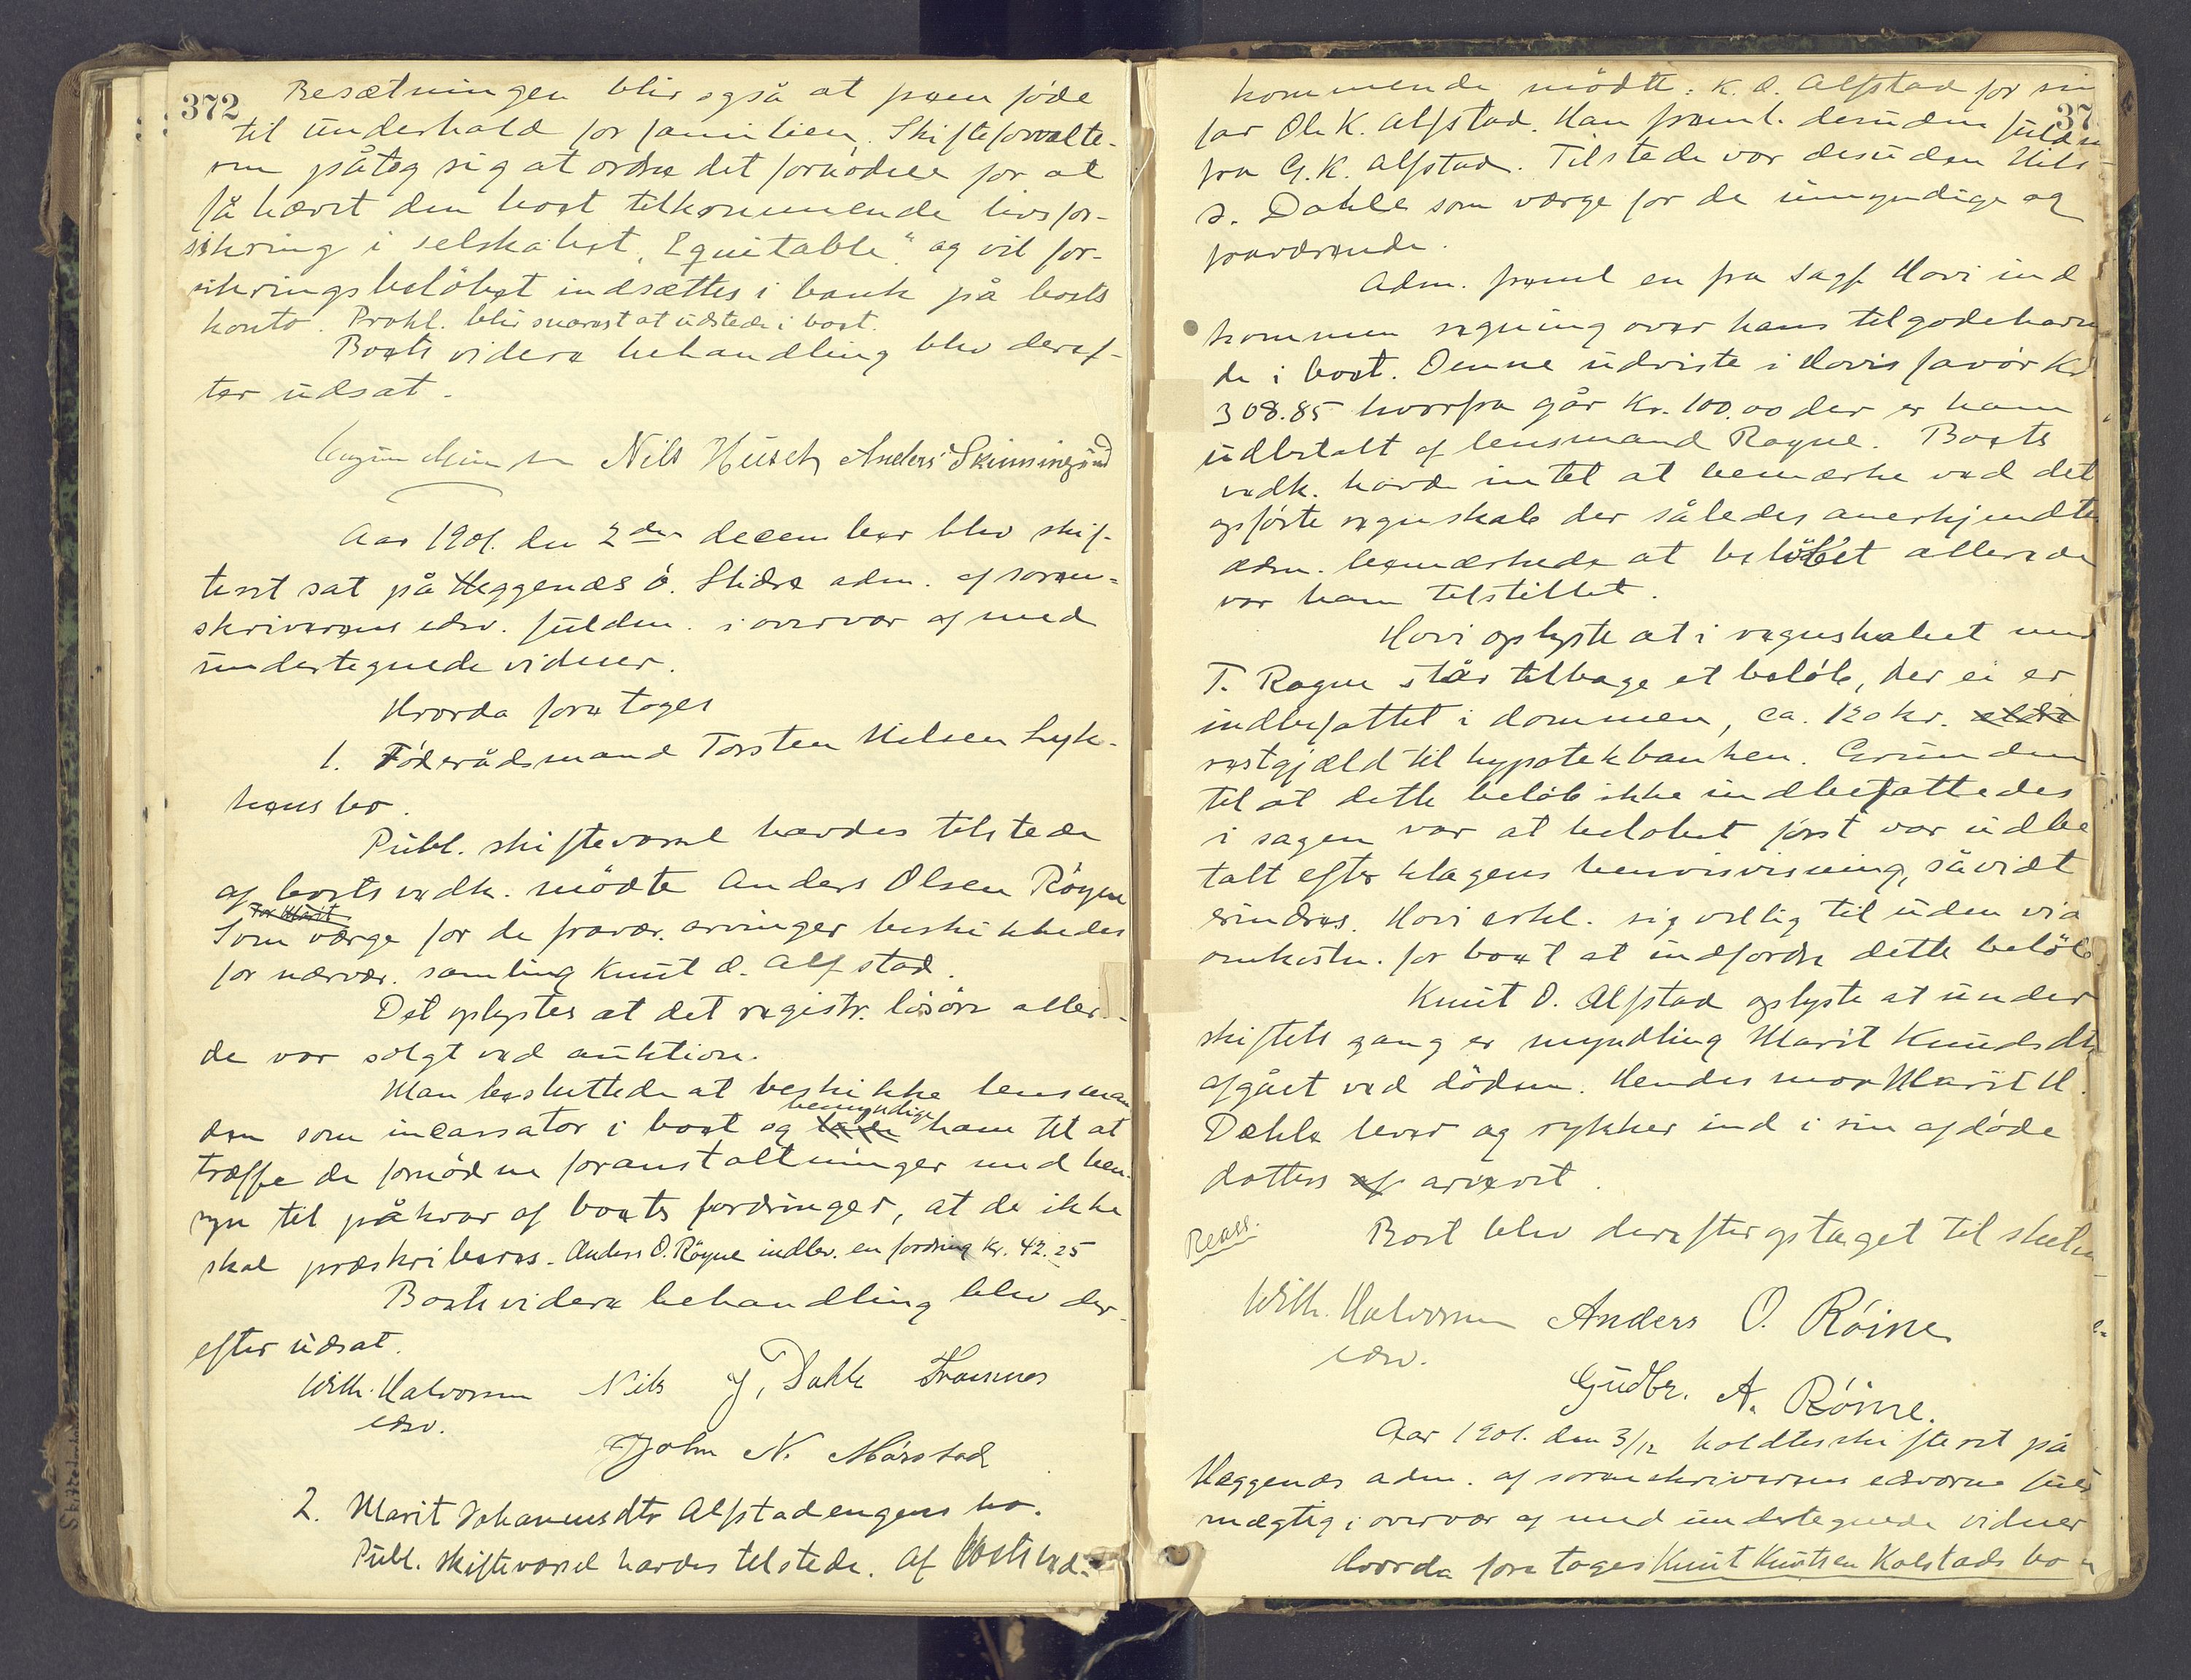 372
Besætningen blir også at frem føde
til underhold for familien. Skifteforvalte-
ren påtog sig at ordne det fornødne for at
få hævet den boet tilkommende livsfor-
sikring i selskabet "Equitable" og vil for-
sikringsbeløbet indsættes i bank på boets
konto. Prokl. blir snarest at udstede i boet.
Boets videre behandling blev deref-
ter udsat.
Nils Huseby Anders Skinningsrud
Aar 1901. den 2den december blev skif-
teret sat på Heggenæs ø. Slidre adm. af soren-
skriverens edsv. fuldm. i overvær af med
undertegnede vidner.
Hvorda foretoges
1. Føderådsmand Torsten Nilsen Lyk-
kens bo.
Publ. skiftevarsel havdes tilstede
af boets vedk. mødte Anders Olsen Röyne
for Marit
Som værge for de fravær. arvinger beskikkedes
for nærvær. samling Knut O. Alfstad.
Det oplystes at det registr. løsøre aller-
de var solgt ved auktion.
Man besluttede at beskikke lensman
bemyndige
den som incassator i boet og ham til at
træffe de fornødne foranstaltninger med hen-
syn til påkrav af boets fordringer, at de ikke
skal præskriberes. Anders O. Röyne indlev. en fordring kr. 42.25
Boets videre behandling blev der-
efter udsat.
Wilh. Halvorsen Nils J. Dahle
edsv.
John N. Mørstad
2. Marit Johannesdtr Alfstadengens bo.
Publ. skiftevarsel havdes tilstede. Af boets ved-
37
kommende mødte: K. O. Alfstad for sin
far Ole K. Alfstad. Han freml. desuden fuldm
fra G. K. Alfstad. Tilstede var desuden Nils
J. Dahle som værge for de umyndige og
fraværende.
Adm. freml en fra sagf. Hovi ind
kommen regning over hans tilgodehaven
de i boet. Denne udviste i Hovis favør Kr
308.85 hvorfra går Kr. 100.00 der er ham
udbetalt af lensmand Rogne. Boets
vedk. havde intet at bemærke ved det
opførte regnskab der således anerkjendtes
adm. bemærkede at beløbet allerede
var ham tilstillet.
Hovi oplyste at i regnskabet med
T. Rogne står tilbage et beløb, der ei er
indbefattet i dommen, ca. 120 kr.
restgjæld til hypotekbanken. Grunden
til at dette beløb ikke indbefattedes
i sagen var at beløbet først var udbe
talt efter klagens henvisvisning, såvidt
erindres. Hovi erkl. sig villig til uden vid
omkostn. for boet at indfordre dette beløb.
Knut O. Alfstad oplyste at under
skiftets gang er myndling Marit Knudsdtr
afgået ved døden. Hendes mor Marit N.
Dahle lever og rykker ind i sin afdøde
datters af arveret.
Reass.
Boet blev derefter optaget til slutn
Wilh. Halvorsen Anders O. Röine
edsv.
Gudbr. A. Röine.
Aar 1901. den 3/12 holdtes skifteret på
Heggenæs adm. af sorenskriverens edsvorne fuld
mægtig i overvær af med undertegnede vidner
Hvorda foretoges Knut Knutsen Kolstads bo